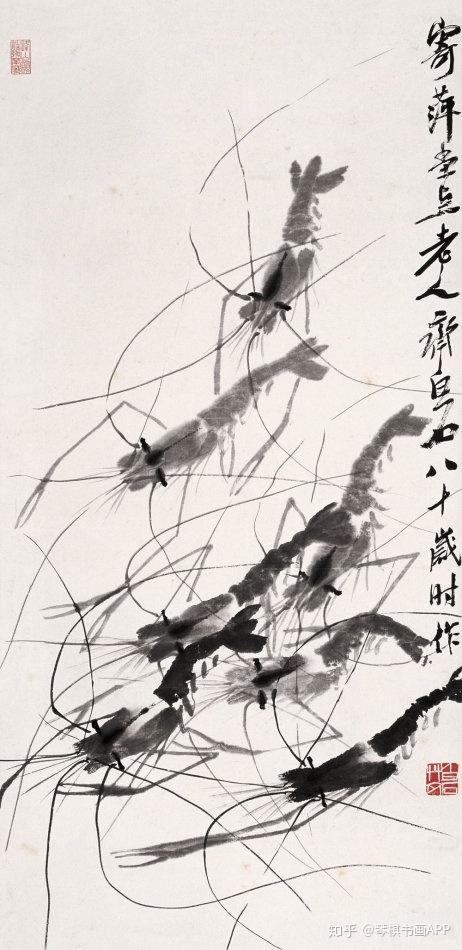 寄萍堂上老人齊白石八十歲时作
知乎 @琴棋书画APP